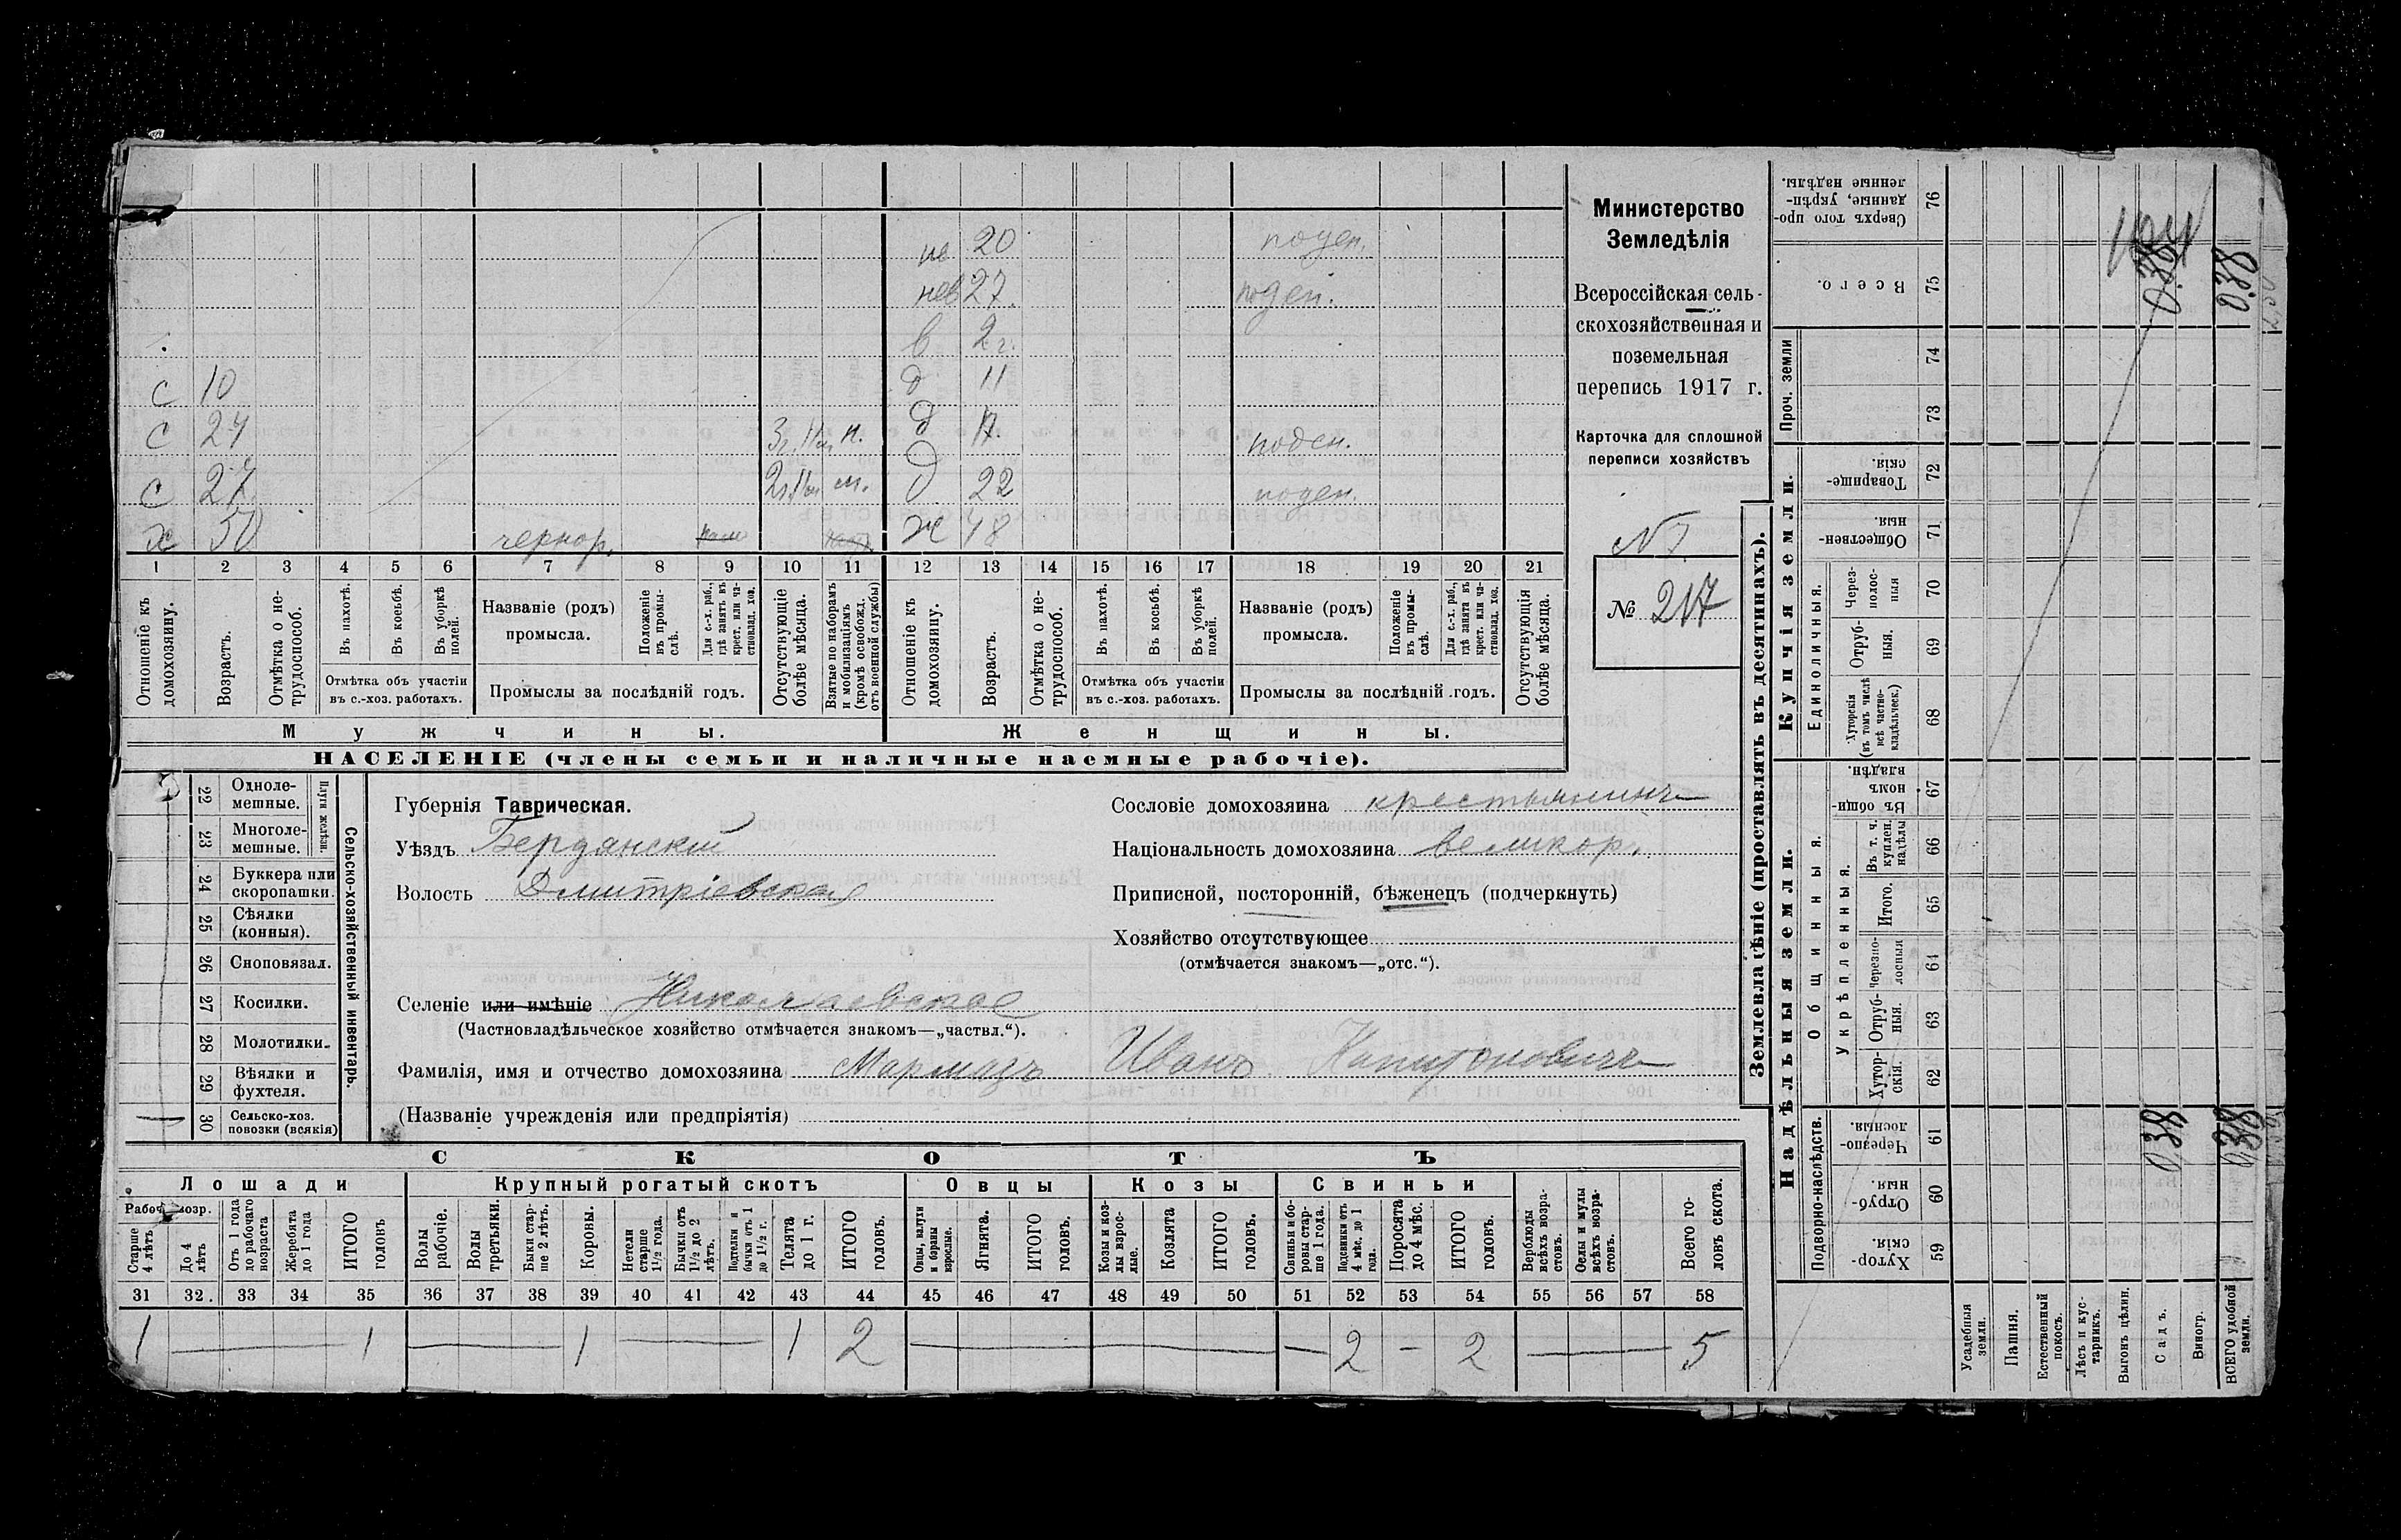 Министерство
Земледѣлія
Всероссійская сель-
скохозяйственная и
поземельная
перепись 1917 г.
Карточка для сплошной
переписи хозяйствъ
№ 217
не 20 поден.
нев 27. поден.
в 2 г.
с 10 д 11
с 24 п. д 17. поден.
с 27 м. д 22 поден.
х 50 чернор. ж 48
1 2 3 4 5 6 7 8 9 10 11 12 13 14 15 16 17 18 19 20 21
Отношеніе къ домохозяину.
Возрастъ.
Отмѣтка о не-трудоспособ.
Въ пахотѣ.
Въ косьбѣ.
Въ уборкѣ полей.
Отмѣтка объ участіи
въ с.-хоз. работахъ.
Названіе (родъ)
промысла.
Положеніе въ промы-слѣ.
Для с.-х. раб., гдѣ занятъ въ крест. или ча-стновлад. хоз.
Промыслы за послѣдній годъ.
Отсутствующіе болѣе мѣсяца.
Взятые по наборамъ и мобилизаціямъ (кромѣ освобожд. отъ военной службы)
Отношеніе къ домохозяину.
Возрастъ.
Отмѣтка о не-трудоспособ.
Въ пахотѣ.
Въ косьбѣ.
Въ уборкѣ полей.
Отмѣтка объ участіи
въ с.-хоз. работахъ.
Названіе (родъ)
промысла.
Положеніе въ промы-слѣ.
Для с.-х. раб., гдѣ занята въ крест. или ча-стновлад. хоз.
Промыслы за послѣдній годъ.
Отсутствующія болѣе мѣсяца.
Мужчины. Женщины.
НАСЕЛЕНІЕ (члены семьи и наличные наемные рабочіе).
22 Одноле-мешные.
23 Многоле-мешные.
Плуги желѣзн.
24 Буккера или скоропашки.
25 Сѣялки (конныя).
26 Сноповязал.
27 Косилки.
28 Молотилки.
29 Вѣялки и фухтеля.
30 Сельско-хоз. повозки (всякія)
Сельско-хозяйственный инвентарь.
Губернія Таврическая.
Уѣздъ Бердянскій
Волость Дмитріевская
Сословіе домохозяина крестьянинъ
Національность домохозяина великор.
Приписной, посторонній, бѣженецъ (подчеркнуть)
Хозяйство отсутствующее
(отмѣчается знакомъ—„отс.“).
Селеніе или имѣніе Николаевское
(Частновладѣльческое хозяйство отмѣчается знакомъ—„частвл.“).
Фамилія, имя и отчество домохозяина Мармазъ Иванъ Капитоновичъ
(Названіе учрежденія или предпріятія)
СКОТЪ
Лошади Крупный рогатый скотъ Овцы Козы Свиньи
Рабоч. возр.
Старше 4 лѣтъ
До 4 лѣтъ
Отъ 1 года до рабочаго возраста
Жеребята до 1 года
ИТОГО головъ
Волы рабочіе.
Волы третьяки.
Быки стар-ше 2 лѣтъ.
Коровы.
Нетели старше 1½ года.
Бычки отъ 1½ до 2 лѣтъ.
Подтелки и бычки отъ 1 до 1½ г.
Телята до 1 г.
ИТОГО головъ.
Овцы, валухи и бараны взрослые.
Ягнята.
ИТОГО головъ.
Козы и коз-лы взрос-лые.
Козлята
ИТОГО головъ.
Свиньи и бо-ровы стар-ше 1 года.
Подсвинки отъ 4 мѣс. до 1 года.
Поросята до 4 мѣс.
ИТОГО головъ.
Верблюды всѣхъ возра-стовъ.
Ослы и мулы всѣхъ возра-стовъ.
Всего го-ловъ скота.
31 32. 33 34 35 36 37 38 39 40 41 42 43 44 45 46 47 48 49 50 51 52 53 54 55 56 57 58
1 — 1 — 1 — 1 2 — — — 2 — 2 — 5
Землевладѣніе (проставлять въ десятинахъ).
Купчія земли.
Надѣльныя земли.
Сверхъ того про-данные, укрѣп-ленные надѣлы. 76
Всего. 75 0.38 0.38
Проч. земли 74 73
Товарище-скія. 72
Обществен-ныя. 71
Единоличныя.
Через-полос-ныя 70
Отруб-ныя. 69
Хуторскія (въ томъ числѣ всѣ частно-владѣльческ.) 68
Общинныя.
Въ общи-номъ владѣн. 67
Укрѣпленныя.
Въ т. ч. куплен. надѣлы 66
Итого. 65
Черезпо-лосныя 64
Отруб-ныя. 63
Хутор-скія. 62
Подворно-наслѣдств.
Черезпо-лосныя. 61 0.38 0.38
Отруб-ныя. 60
Хутор-скія. 59
Усадебныя земли.
Пашня.
Естественный покосъ.
Лѣсъ и кус-тарникъ.
Выгонъ цѣлин.
Садъ.
Виногр.
ВСЕГО удобной земли.